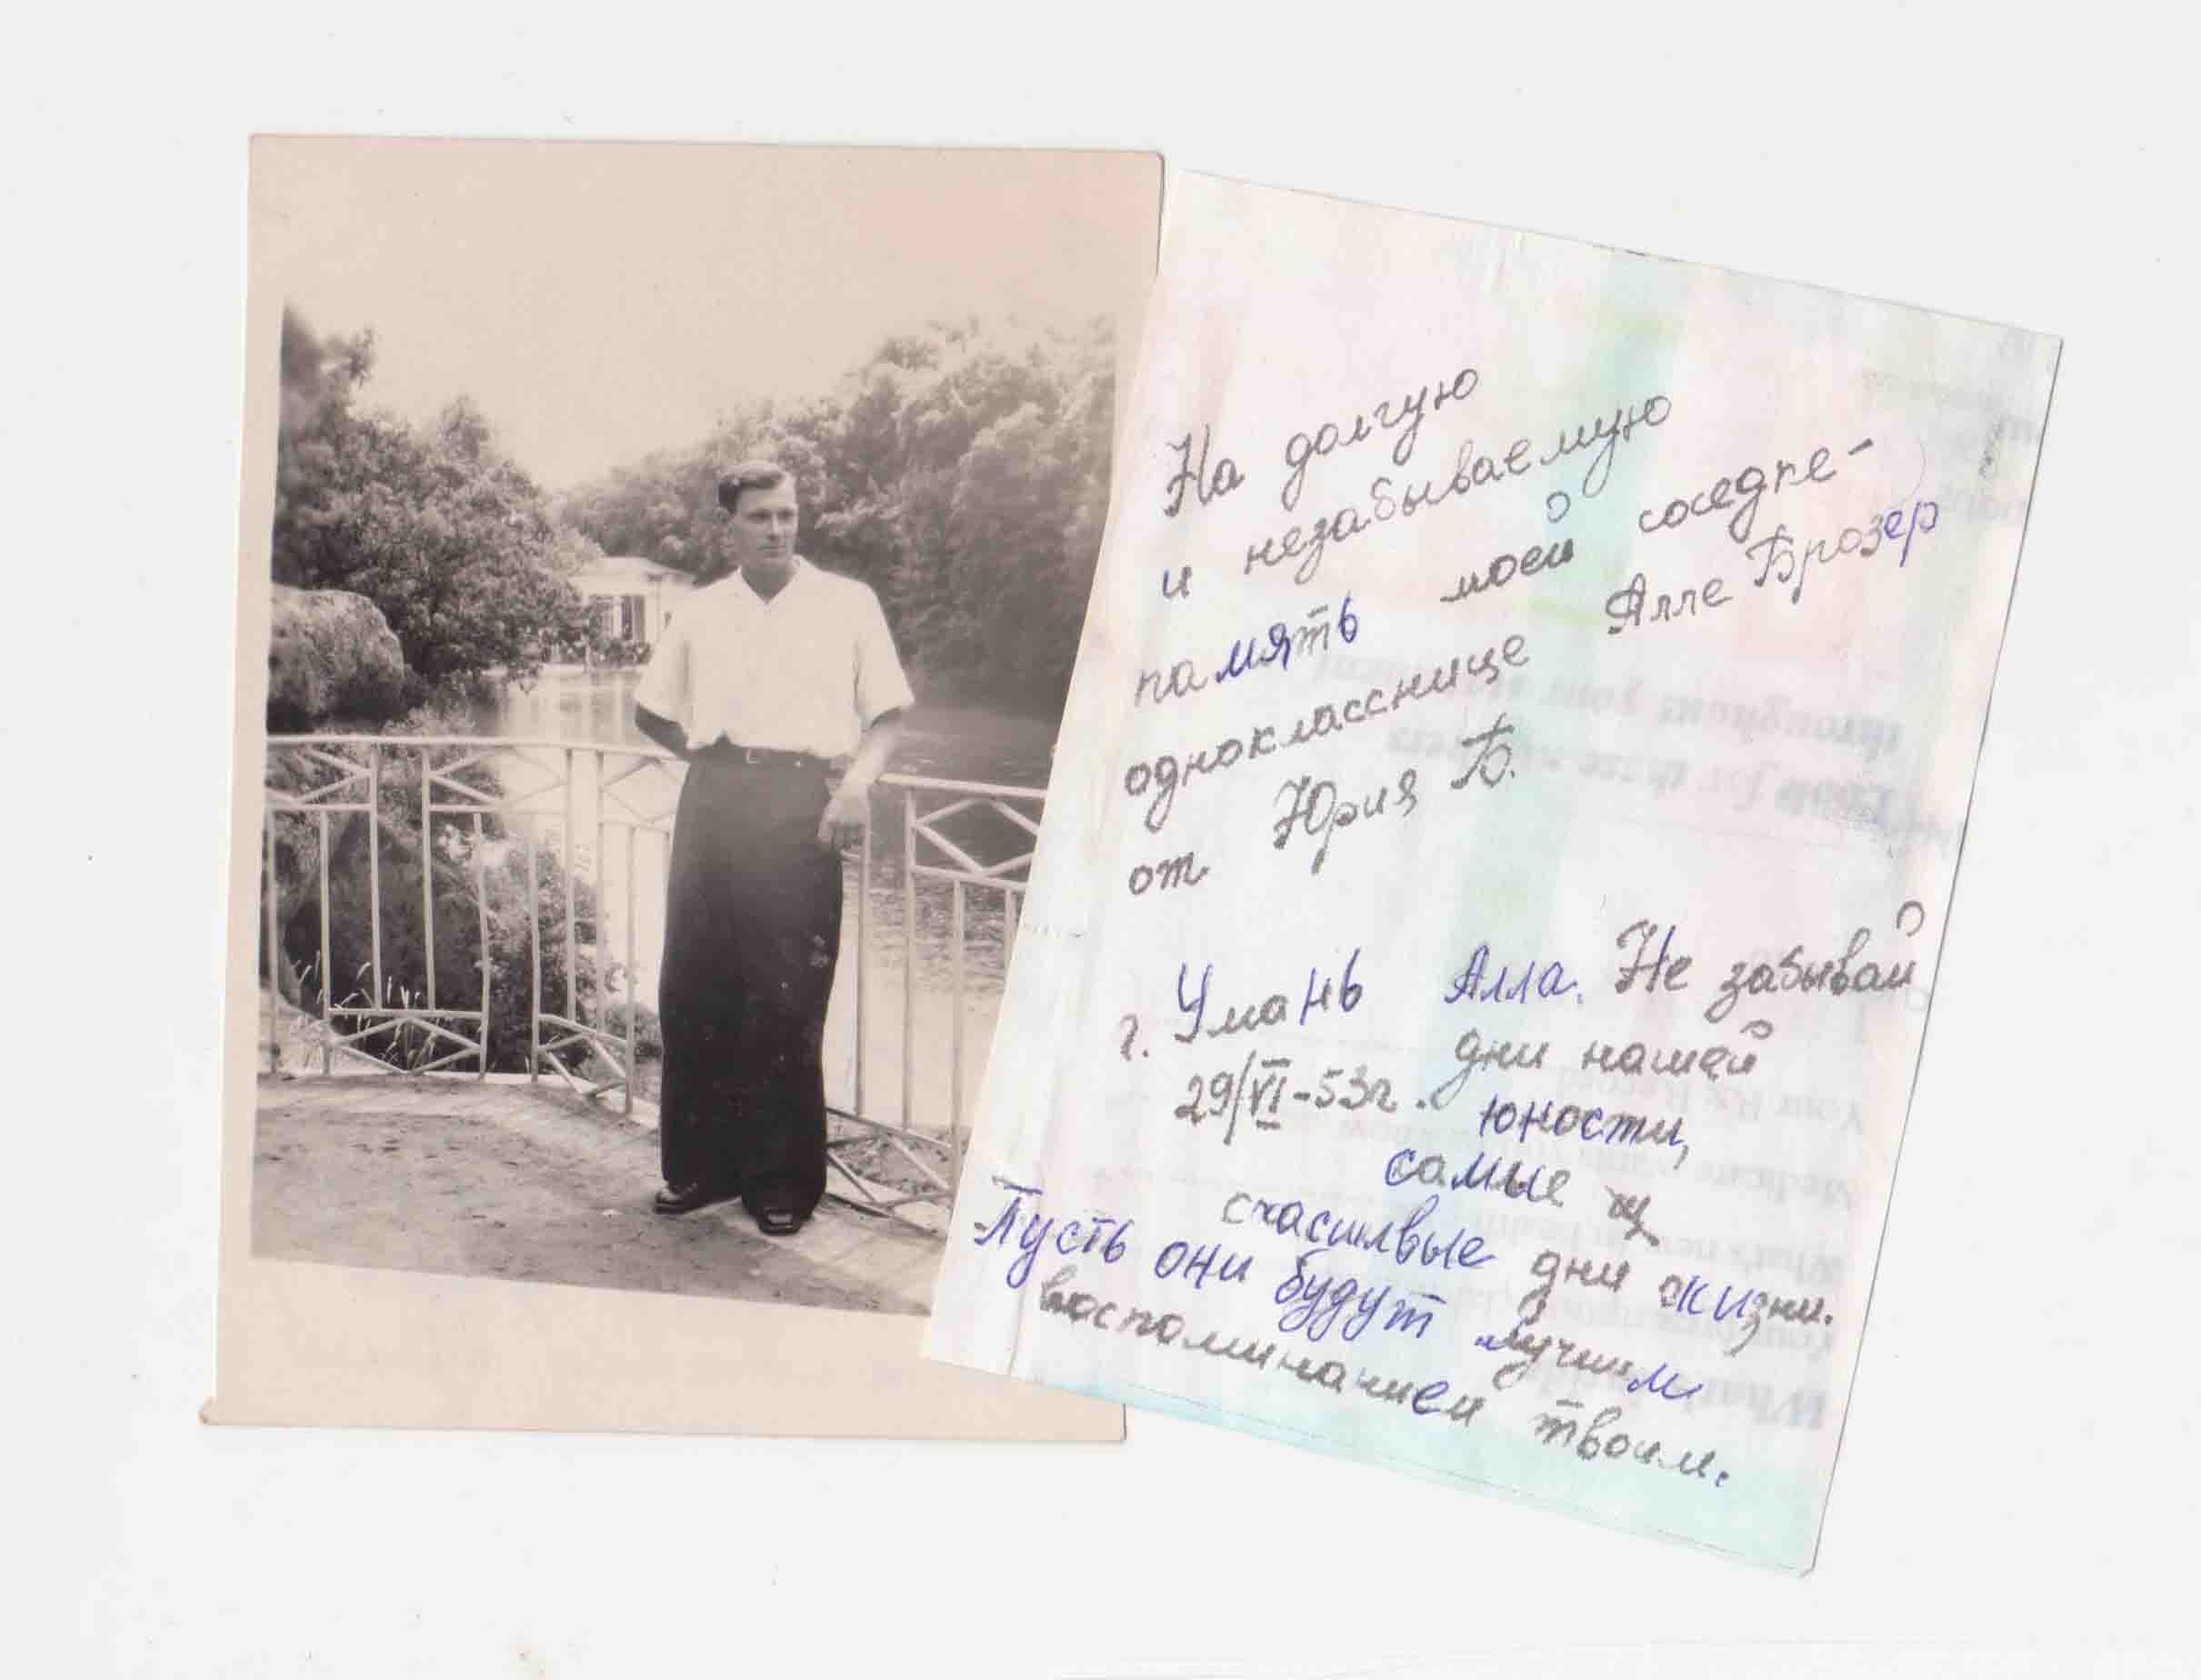 На долгую
и незабываемую
память моей соседке-
однокласснице Алле Брозер
от Юрия Б.
г. Умань
29/VI-53г.
Алла. Не забывай
дни нашей
юности,
самые
счастливые дни жизни.
Пусть они будут лучшим
воспоминанием твоим.